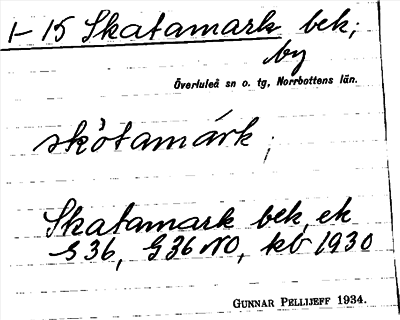 1–15 Skatamark bek;
by
Överluleå sn o. tg, Norrbottens län.
skòtamárk;
Skatamark bek, ek
S 36, G 36 NO, kb 1930
GUNNAR PELLIJEFF 1934.